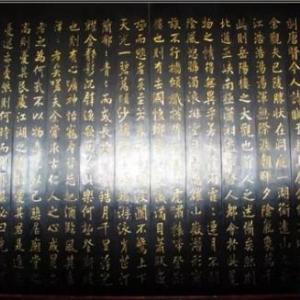 刻唐賢今人詩賦
余觀夫巴陵勝狀在洞庭一湖銜遠山
江浩浩湯湯渾無際涯朝暉夕陰氣象萬千
此則岳陽樓之大觀也前人之述備矣然則
北通巫峽南極瀟湘遷客騷人都會於此覽
物之情得無異乎連月不開
陰風怒號濁浪排空日星隱耀山岳潛形商
旅不行檣傾楫摧薄暮冥冥虎嘯猿啼登斯
樓也則有去國懷鄉
而悲者矣至若春和景明波瀾不驚上下
天光一碧萬頃沙鷗翔集錦鱗游泳岸芷汀
蘭郁郁青青而或長煙一空皓月千里浮光
耀金靜影沉璧漁歌互答此樂何極登斯樓
也則有心曠神怡寵辱皆忘把酒臨風其喜
洋者矣嗟夫余嘗求古仁人之心或異二
者之為何哉不以物喜不以己悲居廟堂之
高則憂其民處江湖之遠則憂其君是進
憂退亦憂然則何時而樂必曰